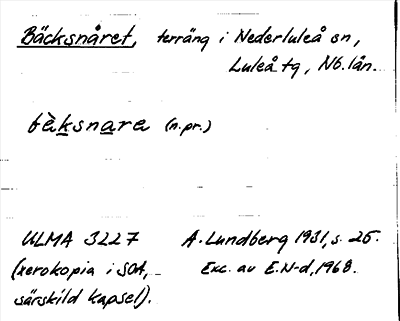 Bäcksnåret, terräng i Nederluleå sn,
Luleå tg, Nb. län.
bèksnare (n.pr.)
ULMA 3227 A. Lundberg 1931, s. 25.
(xerokopia i SOA, Exc. av E.N-d, 1968.
särskild kapsel).